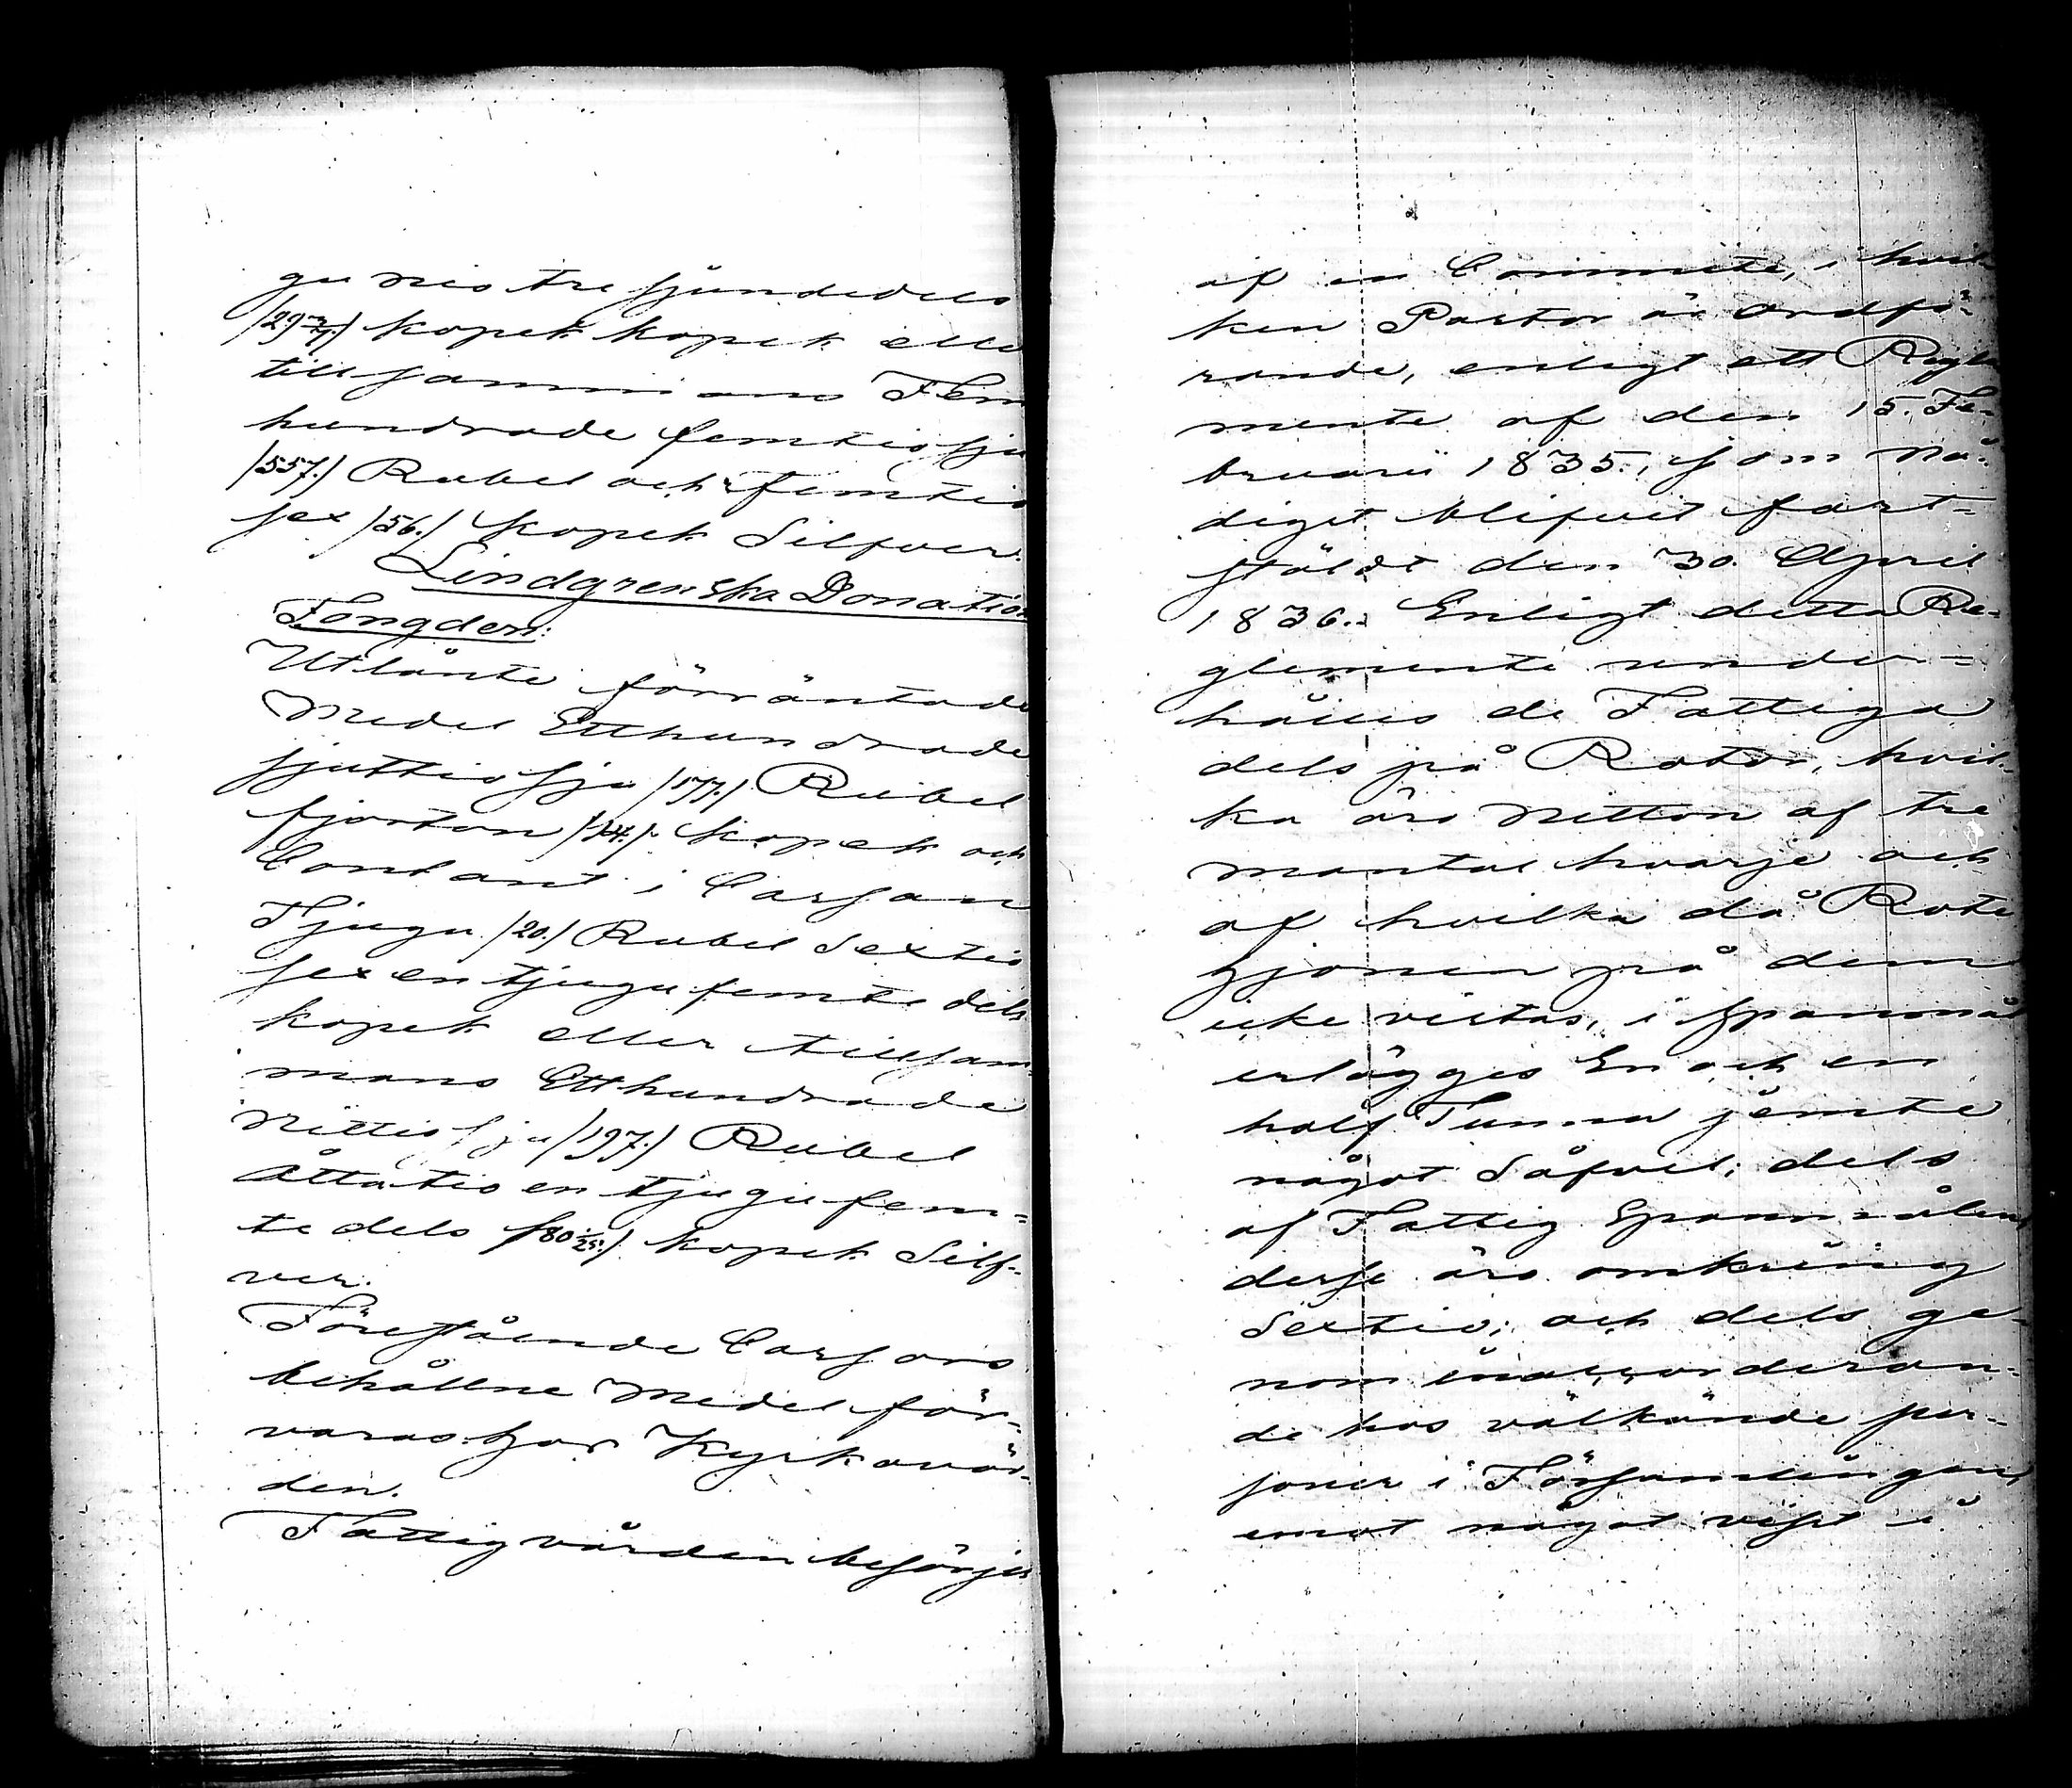 gu nio tre sjundedels
/29 3/7./ kopek kopek eller
tillsammans Fem
hundrade femtiosju
/557./ Rubel och femtio
sex /56./ kopek Silfver.
Lindgrenska Donation
Fongden:
Utlånte förräntade
Medel Etthundrade
sjuttiosju /177./ Rubel
fjorton /14./ kopek och
Contant i Cassan
Tjugu /20./ Rubel Sextio
sex en tjugufemte dels
kopek eller tillsam-
mans Etthundrade
Nittiosju /197./ Rubel
Åttatio en tjugufem-
te dels /80 1/25./ kopek Silf-
ver.
Förestående Cassors
behållne Medel för-
varas hos Kyrkovär-
den.
Fattigvården besörjes
af en Committé, i hvil
ken Pastor är Ordfö-
rande, enligt ett Regle
mente af den 15. Fe-
bruarii 1835., som nå-
digst blifvit fast-
stäldt den 30. April
1836. Enligt detta Re-
glemente under-
hålles de Fattiga
dels på Rotor, hvil-
ka äro Nitton af tre
mantal hvarje och
af hvilka då Rote
hjonen på dem
icke vistas, i Spannmål
erlägges En och en
half Tunna jemte
något Såfvel; dels
af Fattig Spannmålen,
desse äro omkring
Sextio; och dels ge-
nom inaccorderan-
de hos välkände per-
soner i Församlingen,
emot något visst i